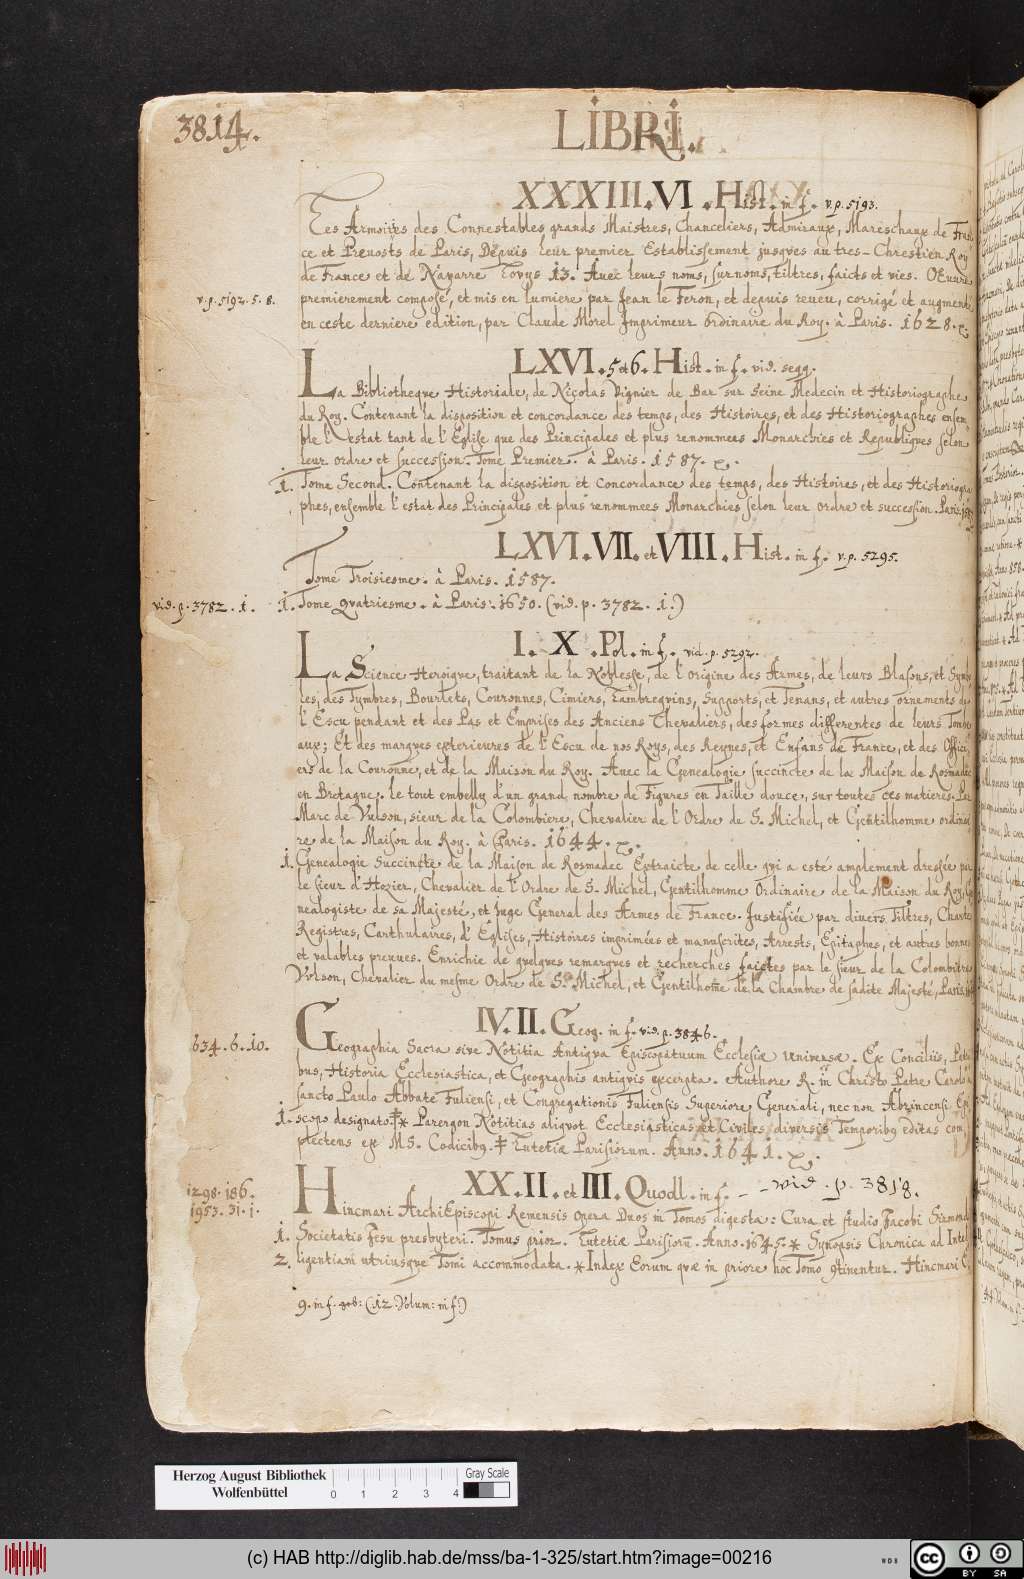 3814.
LIBRI.
XXXIII.VI. Hist. in f. v.p. 5193.
Les Armoiries des Connestables grands Maistres, Chanceliers, Admiraux, Mareschaux de Fran
ce et Prevosts de Paris, Depuis leur premier Establissement jusques au tres-Chrestien Roy
de France et de Navarre Lovys 13. Avec leurs noms, surnoms, tiltres, faicts et vies. OEuvre
v.p. 5192. 5. 8.
premierement composé, et mis en lumiere par Jean le Feron, et depuis reveu, corrigé et augmenté
en ceste derniere edition, par Claude Morel Imprimeur ordinaire du Roy. à Paris. 1628.
LXVI. 5 et 6. Hist. in f. vid. seqq.
La Bibliotheque Historiale, de Nicolas Vignier de Bar sur Seine Medecin et Historiographe
du Roy. Contenant la disposition et concordance des temps, des Histoires, et des Historiographes ensem
ble l'estat tant de l'Eglise que des Principales et plus renommees Monarchies et Republiques selon
leur ordre et succession. Tome Premier. à Paris. 1587.
1. Tome Second. Contenant la disposition et concordance des temps, des Histoires, et des Historiogra
phes, ensemble l'estat des Principales et plus renommees Monarchies selon leur ordre et succession. Paris.
LXVI. VII. et VIII. Hist. in f. v.p. 5295.
Tome Troisiesme. à Paris. 1587.
vid. p. 3782. 1.
1. Tome Quatriesme. à Paris. 1650. (vid. p. 3782. 1.)
I. X. Pol. in f. vid. p. 5292.
La Science Heroique, traitant de la Noblesse, de l'origine des Armes, de leurs Blasons, et Symbo
les, des Tymbres, Bourlets, Couronnes, Cimiers, Lambrequins, Supports, et Tenans, et autres ornements de
l'Escu pendant et des Pas et Emprises des Anciens Chevaliers, des formes differentes de leurs Tombe
aux; Et des marques exterieures de l'Escu de nos Roys, des Reynes, et Enfans de France, et des Offici
ers de la Couronne, et de la Maison du Roy. Avec la Genealogie succincte de la Maison de Rosmadec
en Bretagne. le tout embelly d'un grand nombre de Figures en Taille douce, sur toutes ces matieres. Par
Marc de Vulson, sieur de la Colombiere, Chevalier de l'Ordre de S. Michel, et Gentilhomme ordinai
re de la Maison du Roy. à Paris. 1644.
1. Genealogie succincte de la Maison de Rosmadec Extraicte de celle qui a esté amplement dressée par
le sieur d'Hozier, Chevalier de l'Ordre de S. Michel, Gentilhomme Ordinaire de la Maison du Roy, Ge
nealogiste de sa Majesté, et Juge General des Armes de France. Justifiée par divers Tiltres, Chartes
Registres, Carthulaires, d'Eglises, Histoires imprimées et manuscrites, Arrests, Epitaphes, et autres bonnes
et valables preuves. Enrichie de quelques remarques et recherches faictes par le sieur de la Colombiere
Volson, Chevalier du mesme Ordre de S. Michel, et Gentilhome de la Chambre de sadite Majesté, Paris.
IV. II. Geog. in f. vid. p. 3846.
634. 6. 10.
Geographia Sacra sive Notitia Antiqva Episcopatuum Ecclesiæ universæ. Ex Conciliis, Patri
bus, Historia Ecclesiastica, et Geographis antiqvis excerpta. Authore R. in Christo Patre Carolo a
sancto Paulo Abbate Fuliensi, et Congregationis Fuliensis Superiore Generali, nec non Abrincensi Epi
1. scopo designato.* Parergon Notitias aliqvot Ecclesiasticas et Civiles diversis Temporibus editas com
plectens ex MS. Codicibus. Lutetiæ Parisiorum. Anno. 1641.
XX. II. et III. Quodl. in f. - - vid. p. 3818.
1298. 186.
1953. 31. 1.
Hincmari ArchiEpiscopi Remensis opera Duos in Tomos digesta: Cura et studio Jacobi Sirmondi
1. Societatis Jesu presbyteri. Tomus prior. Lutetiæ Parisiorū. Anno. 1645. * Synopsis Chronica ad Intel
2. ligentiam utriusque Tomi accommodata. * Index Eorum quæ in priore hoc Tomo 9tinentur. Hincmari
9. in f. (12. Volum: in f.)
Herzog August Bibliothek
Wolfenbüttel
0 1 2 3 4
Gray Scale
(c) HAB http://diglib.hab.de/mss/ba-1-325/start.htm?image=00216
WDB
cc BY SA